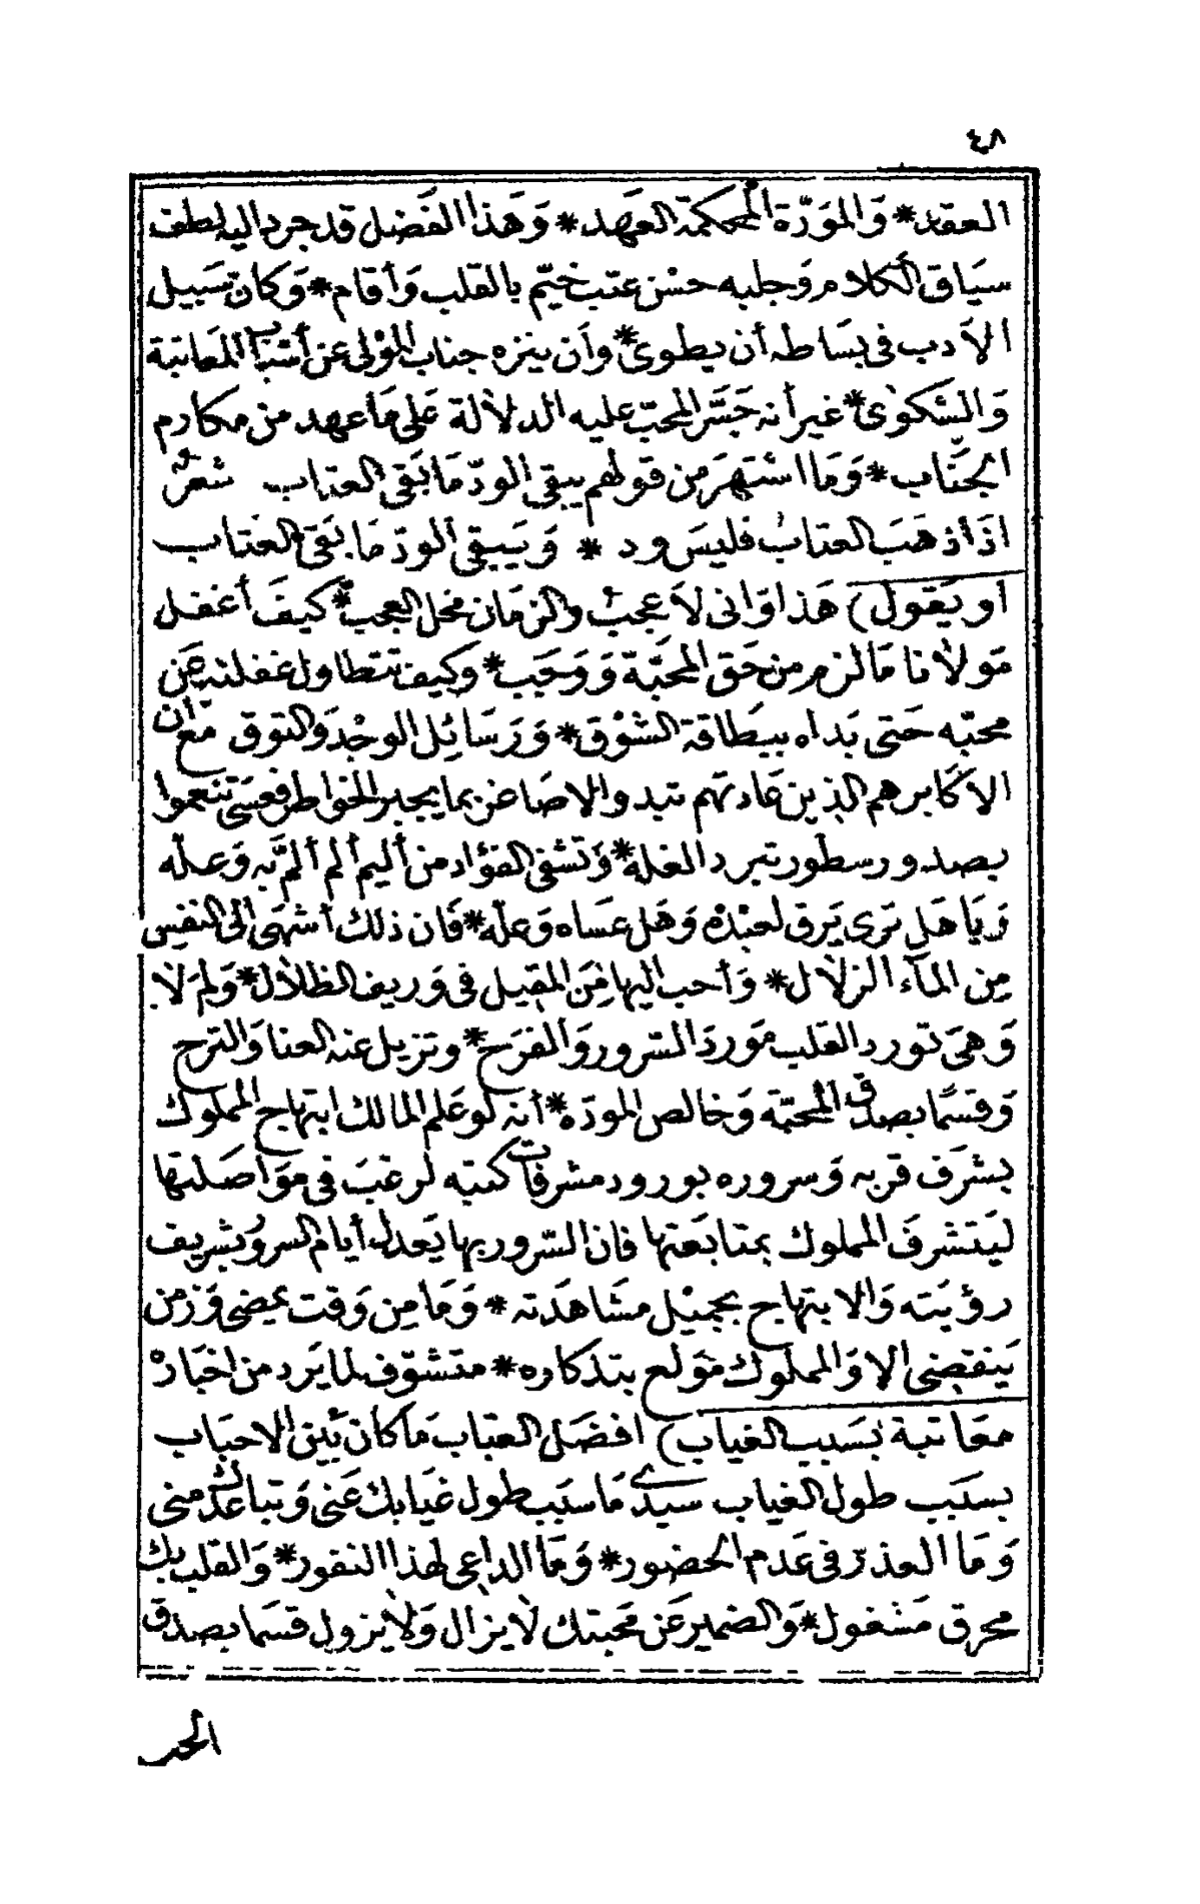 ٤٨
العقد * وَالموَدّة المحكمة العَهد * وَهَذا الفَضل قد جرد اليه لطف
سيَاق الكلام وَجلبه حسْن عتب خيّم بالقلب وَأقام * وَكان سَبيل
الأدب فى بسَاطه أن يطوى * وأن ينزه جناب المؤلى عن أسْبَاب المعَاتبة
وَالشكوىٰ * غير أنه جَسَّر المحبّ عليه الدلالة عَلى مَا عهد من مكارم
الجنَاب * وَمَا اشتهَر من قولهم يبقى الودّ مَا بَقى العتاب شعرٌ
اذَا ذهَبَ العتابُ فليسَ ود * وَيَبقى الودّ مَا بَقى العتَاب
أو يَقول) هَذا وَانى لا عجبٌ والزمَان محَل العجب * كيفَ أغفل
مَولانا مَا لزم من حَق المحَبّة وَوَجَب * وكيف تتطاول غفلته عَن
محبّه حَتى بَداه ببطَاقة الشوْق * وَرَسَائِل الوجْد وَالتوق مَع أن
الاكابر هم الذين عَادتهم تبدو الاصَاغر بما يجبر الخواطر فعسَى تنعموا
بصدور سطور تبرد الغله * وَتشفى الفؤاد من أليم ألم ألمَّ به وَعله
وَيَا هَل تَرى يَرق لعَبْدهْ وَهَل عسَاه وَعله * فَان ذلك أشهَى الى النفيس
مِن المآء الزلال * وَأحب اليها مِنَ المقيل فى وَريف الظلال * وَلم لا
وَهىَ تورد القلب مَوردَ السرور وَالفرَح * وتزيل عنه العنا وَالترح
وَقسمًا بصدق المحبّة وَخالص المودَه * أنه لو عَلم المالك ابتهاج المملوك
بشرَف قربه وَسروره بورود مشرفات كتبه لرغبَ فى موَاصَلتها
ليَتشرفَ المملوك بمتابَعتها فان السّرور بها يَعدل أيام السرور بشريف
رؤيَته وَالابتهاج بجميْل مشَاهدَته * وَمَا مِن وَقت يمضى وَزمن
يَنقضى الا وَالمملوك مَولع بتذكاره * متشوّف لما يَرد من اخبَارهْ
معَاتبة بسَبب الغياب) افضَل العتاب مَا كان بَين الاحبَاب
بسَبَب طول الغياب سيدى مَا سَبَب طول غيَابك عَنى وَتباعدك منى
وَمَا العذر فى عَدم الحضور * وَمَا الداعى لهذا النفور * وَالقلب بك
محرق مَشغول * وَالضمير عَن محَبتك لايزال وَلا يزول قسمَا بصدق
الحب